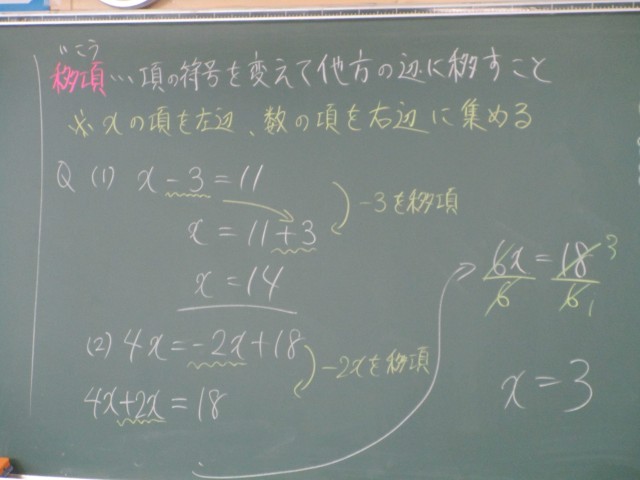 いこう
移項…項の符号を変えて他方の辺に移すこと
※xの項を左辺、数の項を右辺に集める
Q (1) x - 3 = 11
-3を移項
x = 11 + 3
x = 14
(2) 4x = -2x + 18
-2xを移項
4x + 2x = 18
6x/6 = 18/6 3 1
x = 3